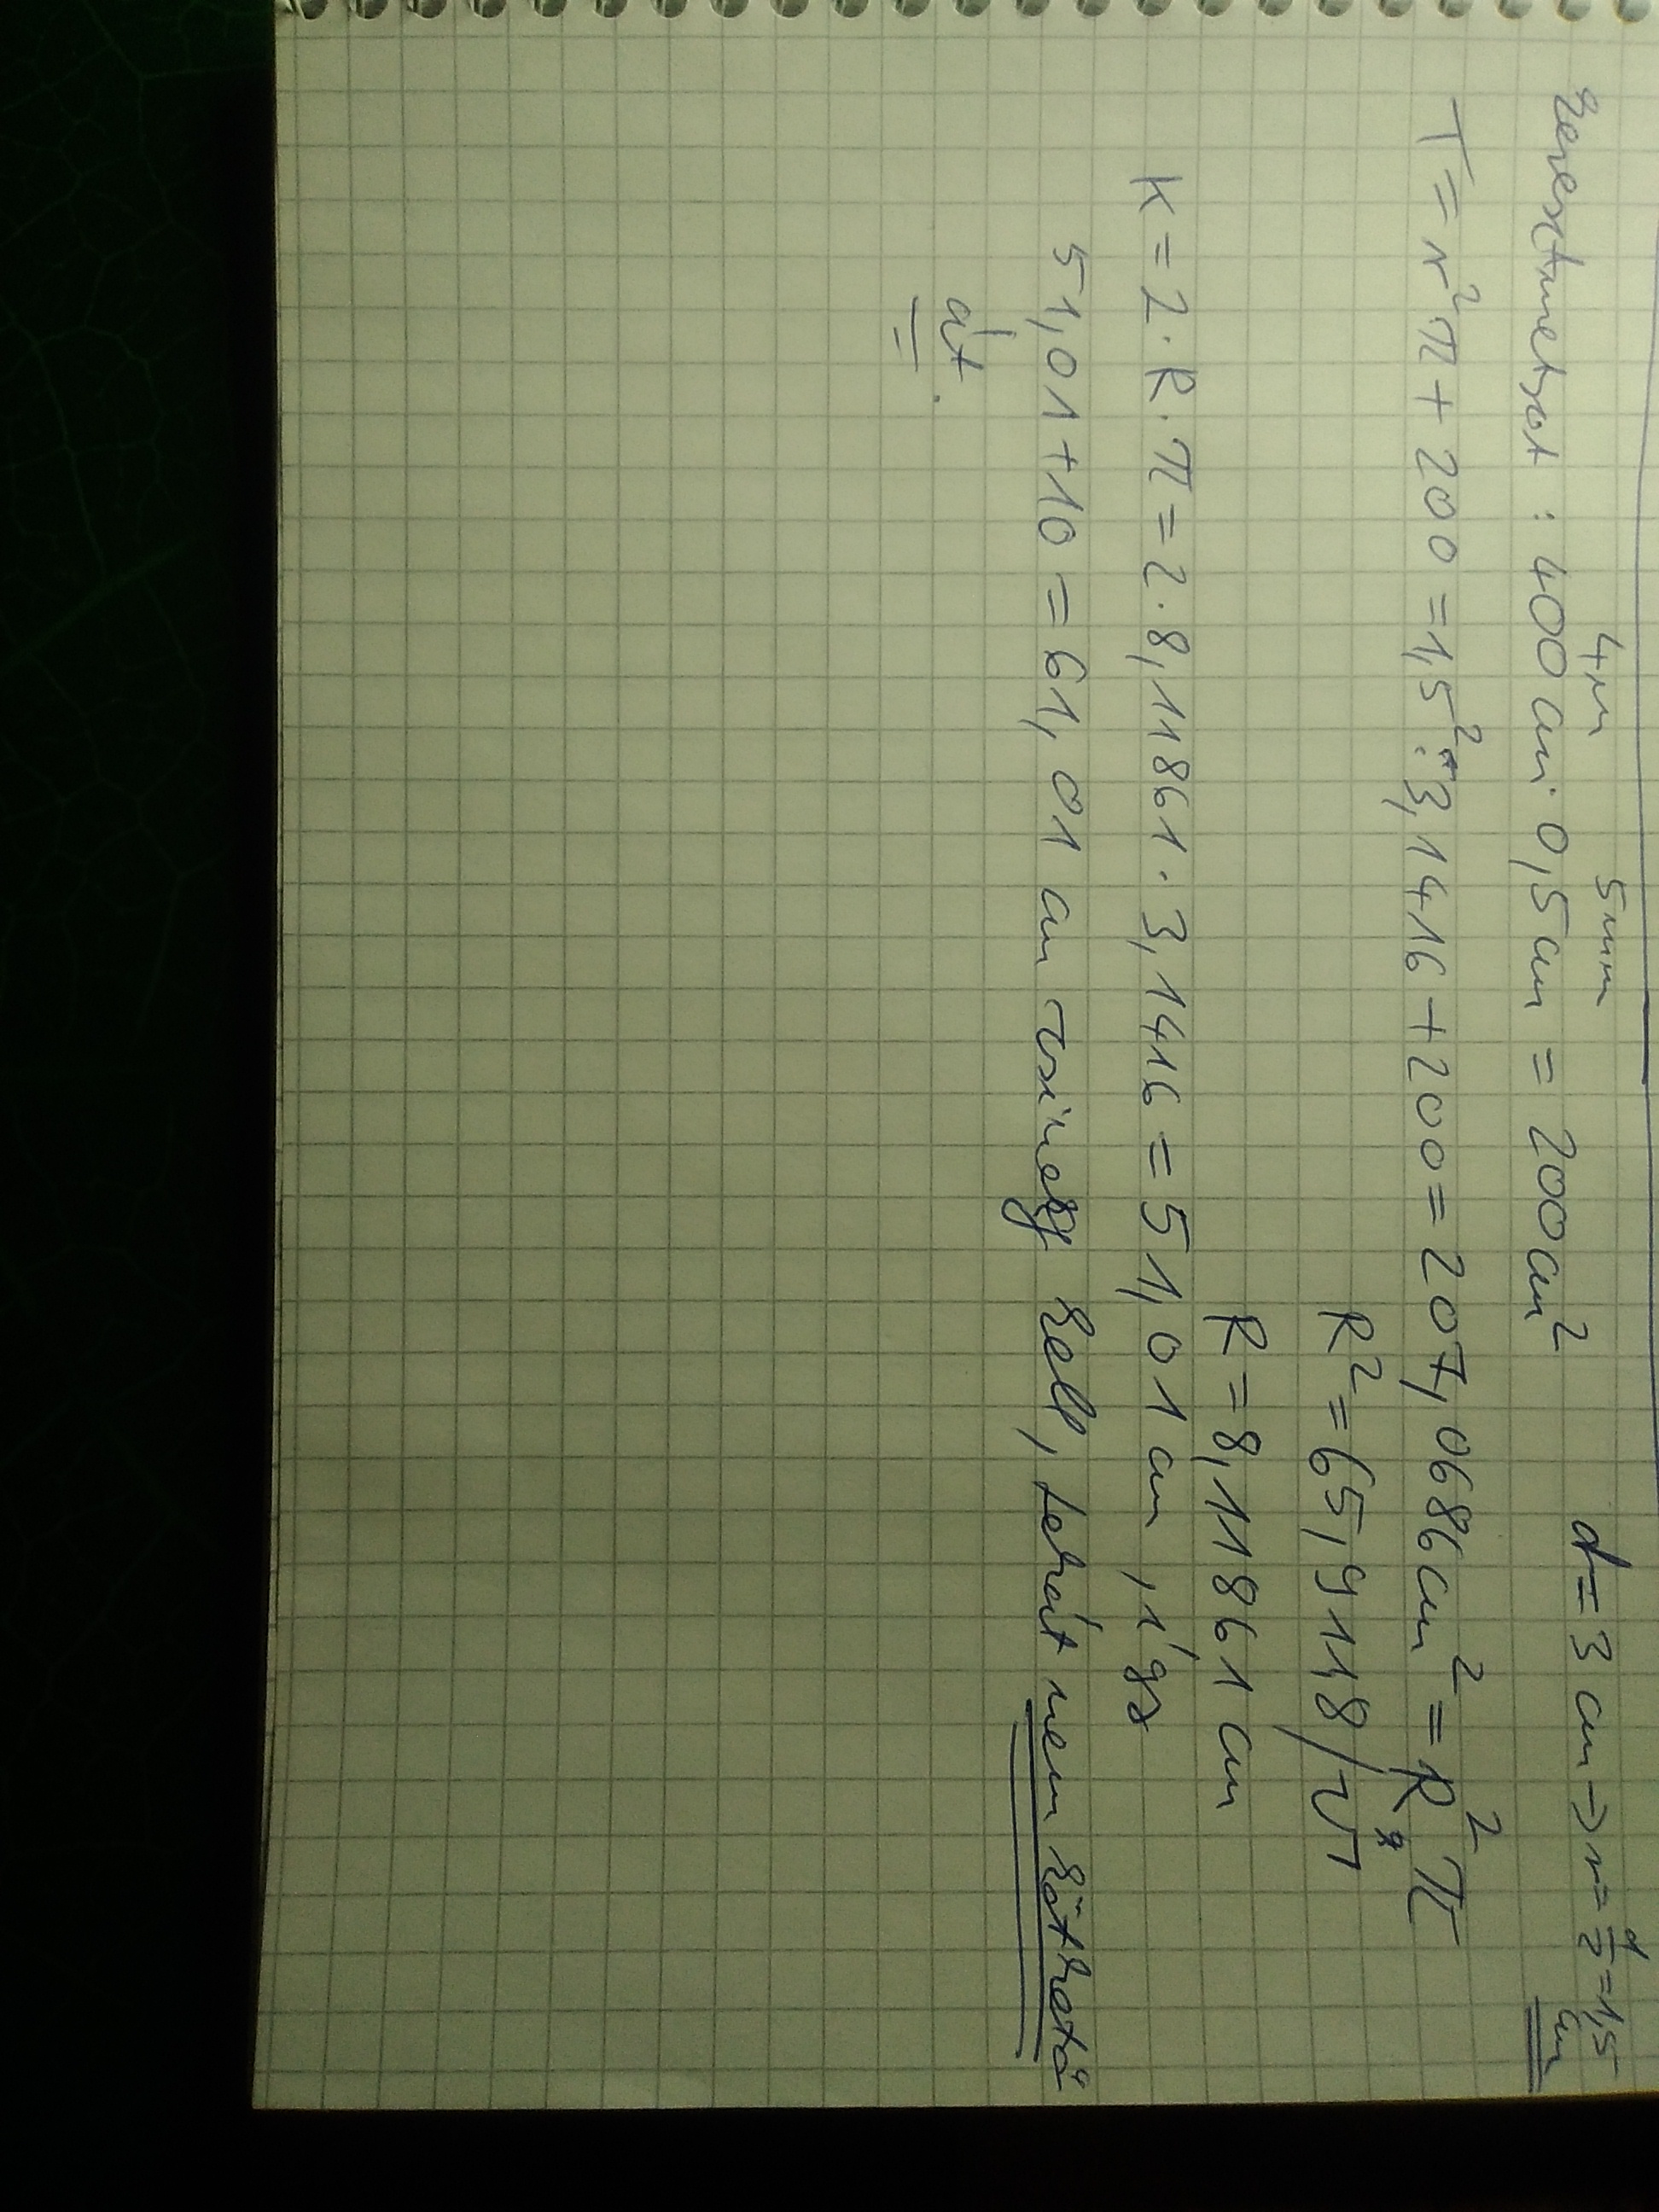 4m 5mm
keresztmetszet : 400cm · 0,5cm = 200cm² d=3cm → r = d/2 = 1,5 cm
T = r²π + 200 = 1,5² · 3,1416 + 200 = 207,0686cm² = R²π
R² = 65,9118 /√
R = 8,11861 cm
K = 2 · R · π = 2 · 8,11861 · 3,1416 = 51,01 cm, így
51,01 + 10 = 61,01 cm zsineg kell, tehát nem köthető
át.